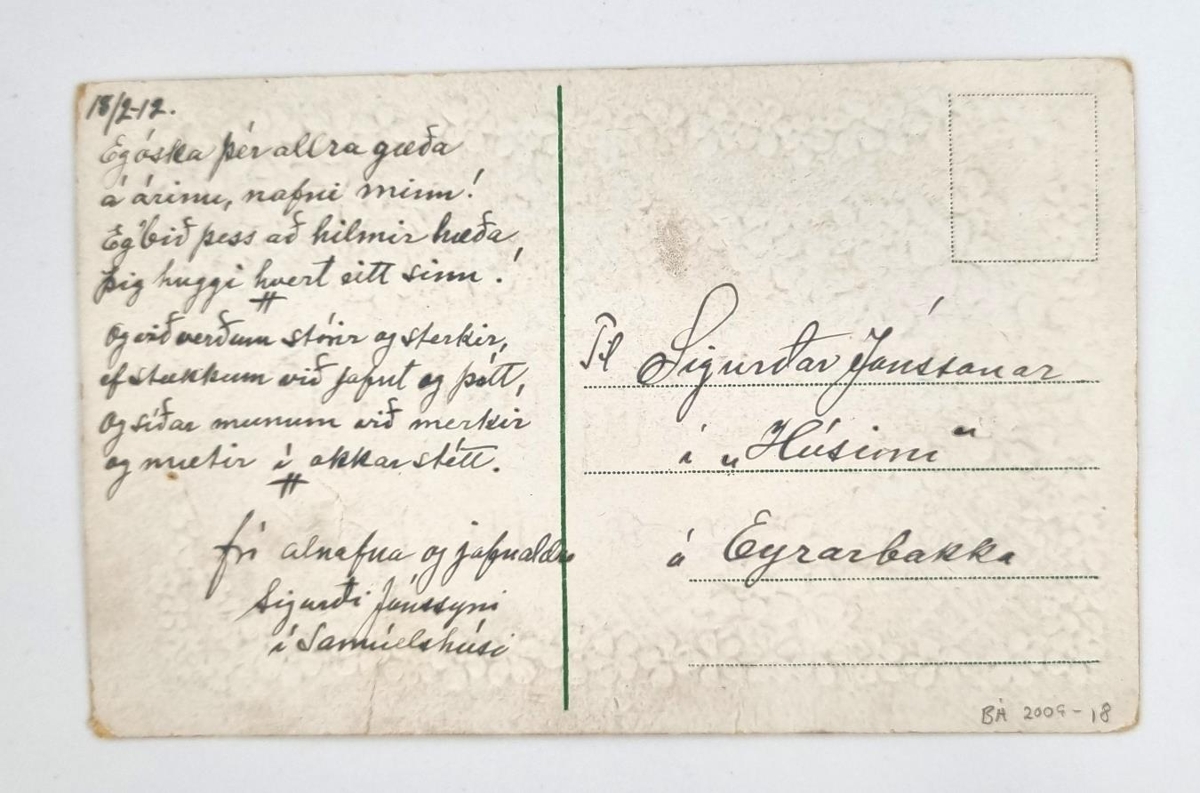 18/2-12.
Eg óska þér allra gæða
á árinu, nafni minn!
Eg bið þess að hilmir hæða
þig huggi hvert eitt sinn!
Og við verðum stórir og sterkir,
ef stækkum við jafnt og þétt,
og síðar munum við merkir
og mætir í okkar stétt.
frá alnafna og jafnaldra
Sigurði Jónssyni
í Samúelshúsi
Til Sigurðar Jónssonar
í „Húsinu"
á Eyrarbakka
BÁ 2009-18